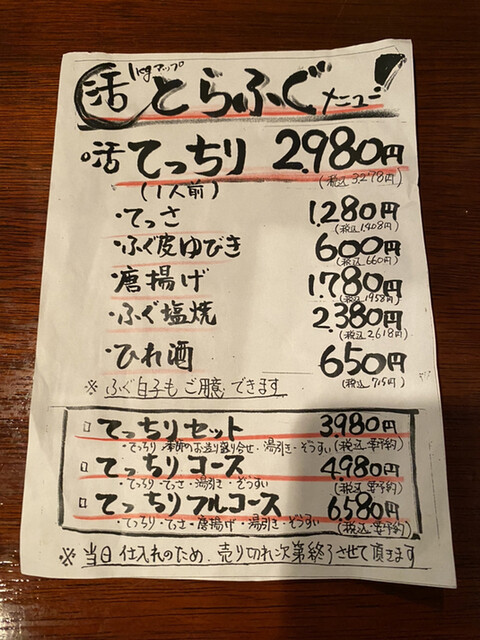 活 1kgアップ とらふぐメニュー
活てっちり 2.980円
(1人前) (税込 3.278円)
・てっさ 1.280円
(税込 1.408円)
・ふぐ皮ゆびき 600円
(税込 660円)
・唐揚げ 1.780円
(税込 1958円)
・ふぐ塩焼 2.380円
(税込 2618円)
・ひれ酒 650円
(税込 715円)
※ふぐ白子もご用意できます
てっちりセット 3.980円
・てっちり・季節のお造り盛り合せ・湯引き・ぞうすい (税込 要予約)
てっちりコース 4.980円
・てっちり・てっさ・湯引き・ぞうすい (税込 要予約)
てっちりフルコース 6.580円
・てっちり・てっさ・唐揚げ・湯引き・ぞうすい (税込 要予約)
※当日仕入れのため、売り切れ次第終了させて頂きます